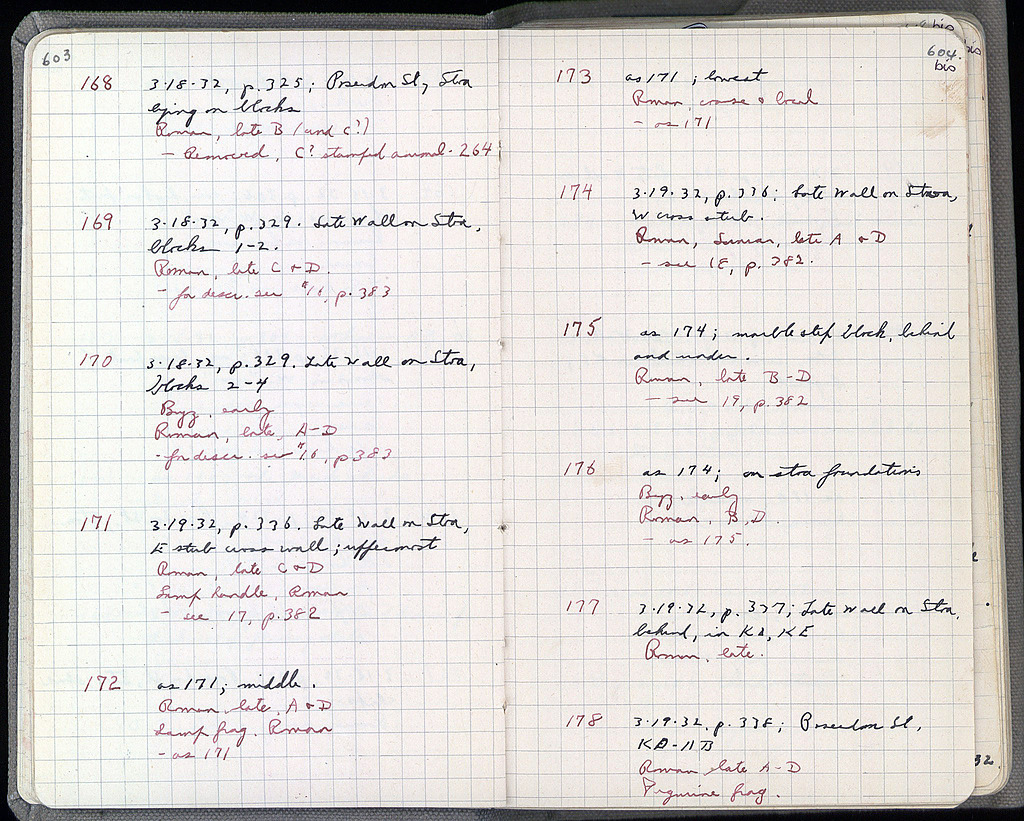 603
168 3·18·32, p. 325; Poseidon St, Stoa
lying on blocks
Roman, late B (and C?)
— Removed, C? stamped animal · 264
169 3·18·32, p. 329. Late Wall on Stoa,
blocks 1-2.
Roman, late C & D.
- for descr. see #16, p. 383
170 3·18·32, p. 329. Late Wall on Stoa,
blocks 2-4
Byz, early
Roman, late, A-D
- for descr. see #16, p 383
171 3·19·32, p. 336. Late Wall on Stoa,
E stub cross wall; uppermost
Roman, late C & D
Lamp handle, Roman
- see 17, p. 382
172 as 171; middle.
Roman late, A & D
Lamp frag. Roman
- as 171
604.
bis
173 as 171; lowest
Roman, coarse & local
- as 171
174 3·19·32, p. 336; Late Wall on Stoa,
W cross stub.
Roman, Samian, late A & D
- see 18, p. 382.
175 as 174; marble step block, behind
and under.
Roman, late B-D
- see 19, p. 382
176 as 174; on stoa foundations
Byz. early
Roman, B, D.
- as 175.
177 3·19·32, p. 337; Late Wall on Stoa,
behind, in KD, KE
Roman, late.
178 3·19·32, p. 338; Poseidon St,
KD-11B
Roman late A-D
Figurine frag.
bis
bis
32.